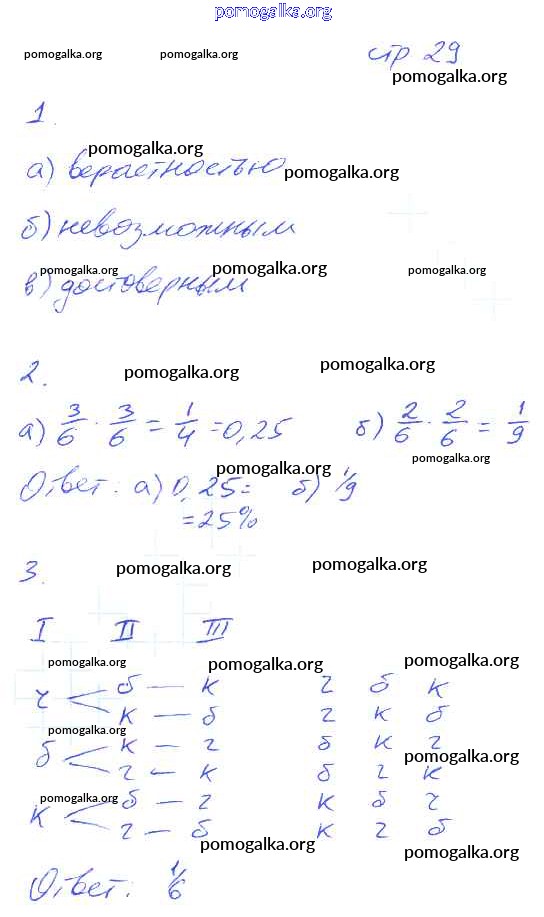 pomogalka.org
pomogalka.org pomogalka.org стр 29
pomogalka.org
1.
pomogalka.org
а) вераетностью pomogalka.org
б) невозможным
pomogalka.org pomogalka.org pomogalka.org
в) достоверным
2. pomogalka.org pomogalka.org
а) 3/6 · 3/6 = 1/4 = 0,25 б) 2/6 · 2/6 = 1/9
pomogalka.org
pomogalka.org
Ответ: а) 0,25 = б) 1/9
= 25%
3. pomogalka.org pomogalka.org
I II III
pomogalka.org pomogalka.org pomogalka.org
г < б — к г б к
к — б г к б
pomogalka.org
б < к — г б к г
pomogalka.org
г — к б г к
pomogalka.org
к < б — г к б г
г — б к г б
pomogalka.org pomogalka.org
Ответ: 1/6